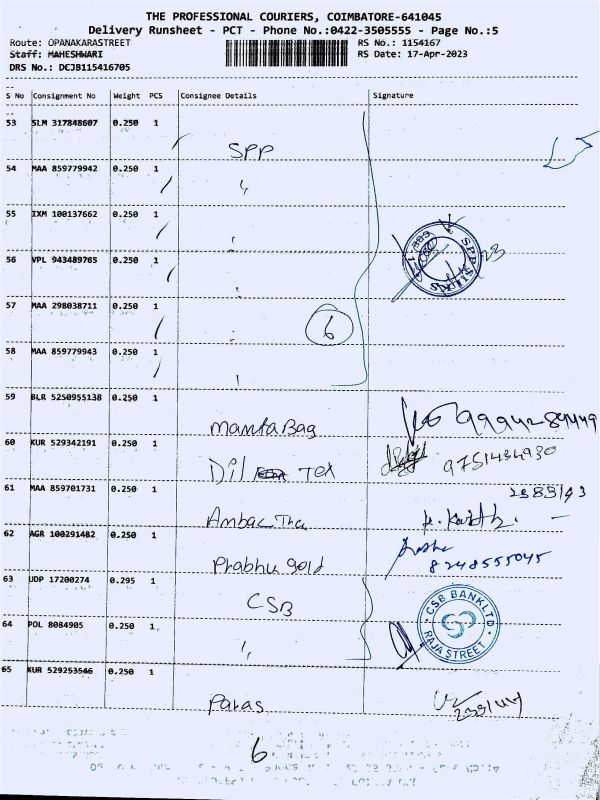 THE PROFESSIONAL COURIERS, COIMBATORE-641045
Delivery Runsheet - PCT - Phone No.:0422-3505555 - Page No.:5
Route: OPANAKARASTREET
RS No.: 1154167
Staff: MAHESHWARI
RS Date: 17-Apr-2023
DRS No.: DCJB115416705
S No Consignment No Weight PCS Consignee Details Signature
53 SLM 317848607 0.250 1
SPP
54 MAA 859779942 0.250 1
55 IXM 100137662 0.250 1
56 VPL 943489765 0.250 1
57 MAA 298038711 0.250 1
6
58 MAA 859779943 0.250 1
59 BLR 5250955138 0.250 1
Mamta Bag
60 KUR 529342191 0.250 1
Dil Tex 9751434930
61 MAA 859701731 0.250 1
62 AGR 100291482 0.250 1
Prabhu gold 8248555045
63 UDP 17200274 0.295 1
CSB
CSB BANK LTD
RAJA STREET
64 POL 8084905 0.250 1
65 KUR 529253546 0.250 1
Paras
6